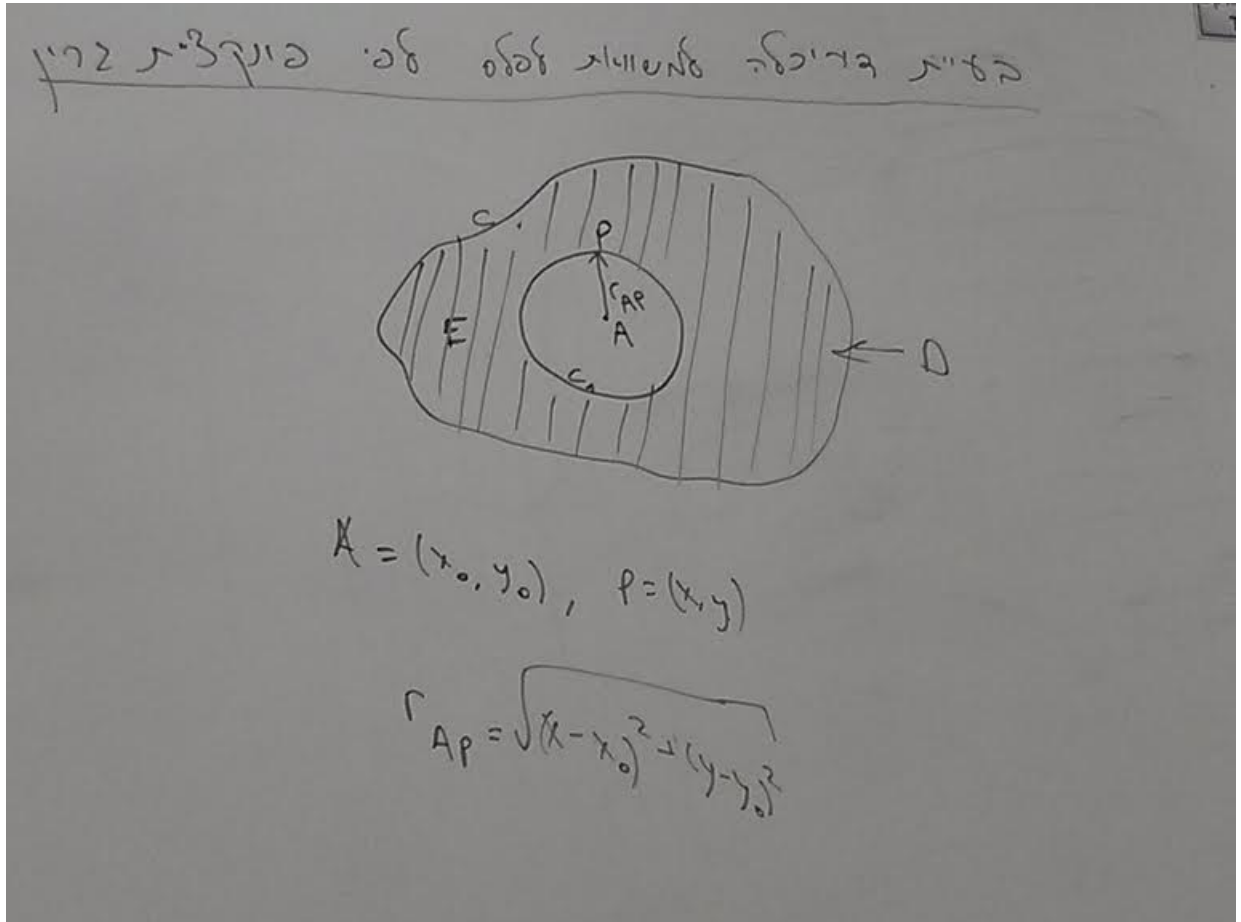 בעיית דיריכלה למשוואת לפלס לפי פונקצית גרין
C
P
r_AP
E
A
D
A = (x₀, y₀), P = (x, y)
r_AP = √((x - x₀)² + (y - y₀)²)